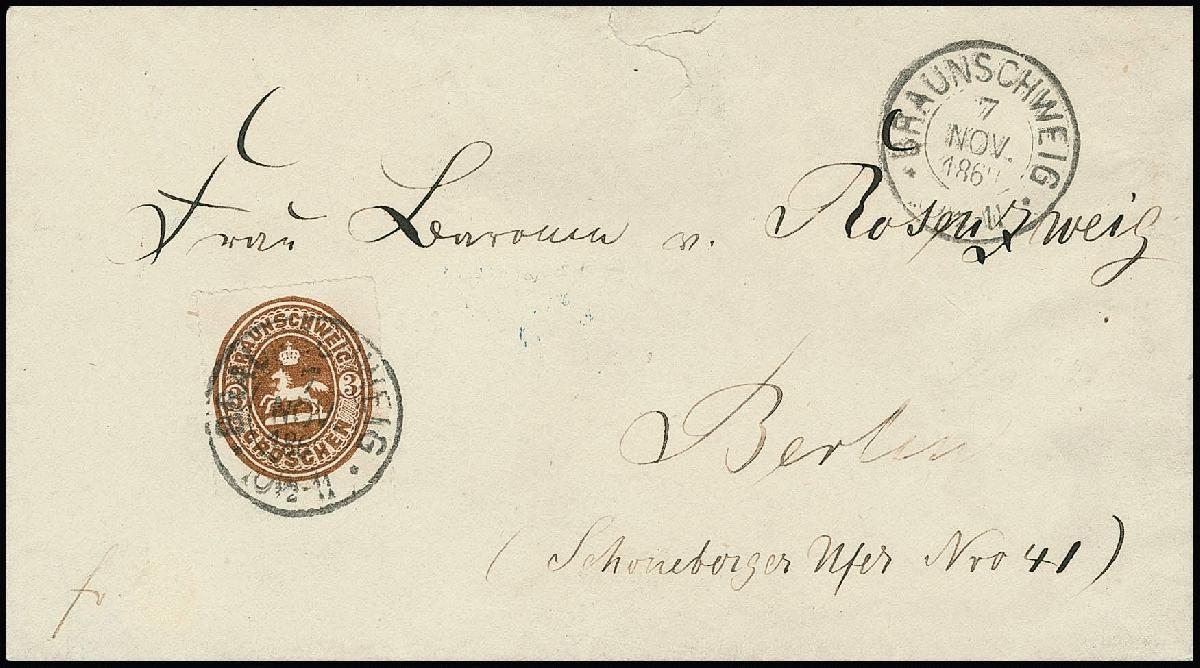 BRAUNSCHWEIG
7
NOV.
Frau Baronin v. Rosenzweig
BRAUNSCHWEIG
3 3
GROSCHEN
NOV
10½-11
Berlin
(Schöneberger Ufer Nro 41)
fr.